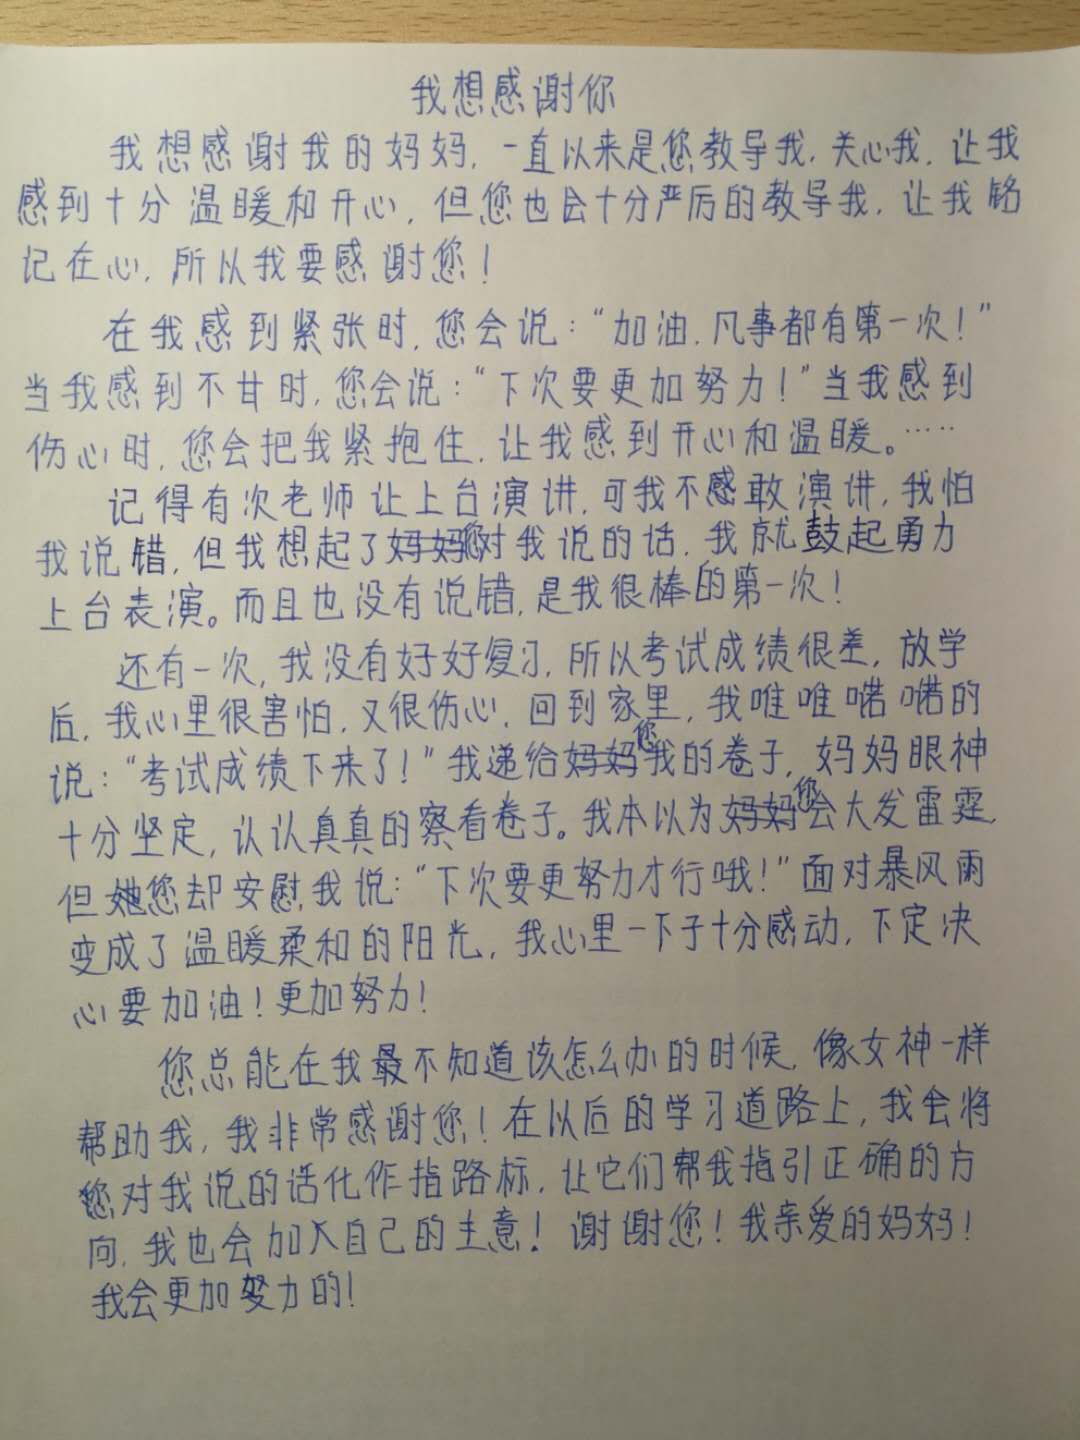 我想感谢你
我想感谢我的妈妈，一直以来是您教导我，关心我，让我
感到十分温暖和开心，但您也会十分严厉的教导我，让我铭
记在心，所以我要感谢您！
在我感到紧张时，您会说：“加油，凡事都有第一次！”
当我感到不甘时，您会说：“下次要更加努力！”当我感到
伤心时，您会把我紧抱住，让我感到开心和温暖。……
记得有次老师让上台演讲，可我不感敢演讲，我怕
我说错，但我想起了您对我说的话，我就鼓起勇力
上台表演。而且也没有说错，是我很棒的第一次！
还有一次，我没有好好复习，所以考试成绩很差，放学
后，我心里很害怕，又很伤心，回到家里，我唯唯喏喏的
说：“考试成绩下来了！”我递给您我的卷子，妈妈眼神
十分坚定，认认真真的察看卷子。我本以为您会大发雷霆，
但您却安慰我说：“下次要更努力才行哦！”面对暴风雨
变成了温暖柔和的阳光，我心里一下子十分感动，下定决
心要加油！更加努力！
您总能在我最不知道该怎么办的时候，像女神一样
帮助我，我非常感谢您！在以后的学习道路上，我会将
您对我说的话化作指路标，让它们帮我指引正确的方
向，我也会加入自己的主意！谢谢您！我亲爱的妈妈！
我会更加努力的！